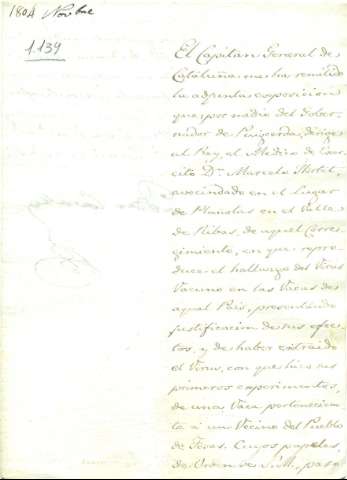 1804 Novbre
1.134
El Capitan General de
Cataluña me ha remitido
la adjunta exposicion
que por medio del Gober-
nador de Puigcerda, dirige
al Rey, el Medico de Exer-
cito Dn. Marcelo
avecindado en el Lugar
de Planolas en el Valle
de Ribas, de aquel Corre-
gimiento, en que repro-
duce el hallazgo del Virus
Vacuno en las Vacas de
aquel Pais, presentando
justificacion de sus efec-
tos, y de haber extraido
el Virus, con que hizo sus
primeros experimentos,
de una Vaca pertenecien-
te á un Vecino del Pueblo
de Cuyos papeles,
de Orden de S.M., paso